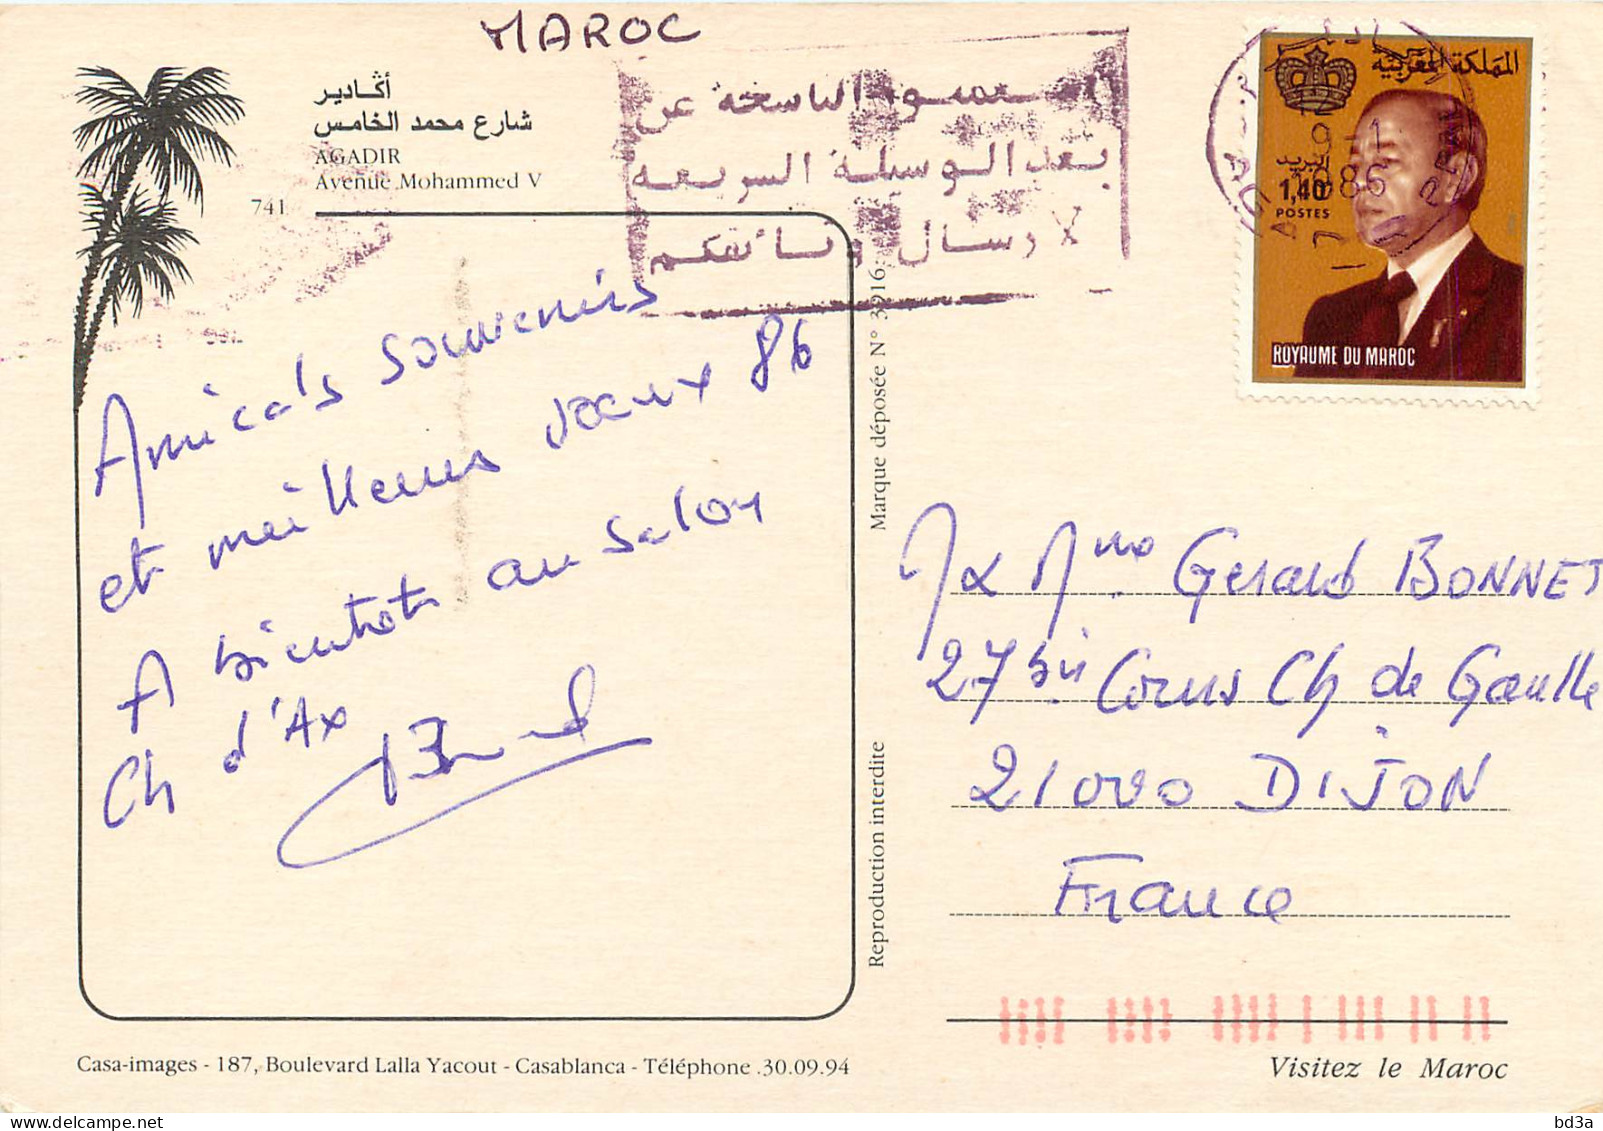 MAROC
أڭادير
شارع محمد الخامس
AGADIR
Avenue Mohammed V
741
الناسخة عن
بعد الوسيلة السريعة
لارسال وثائقكم
المملكة المغربية
البريد
1,40
POSTES
ROYAUME DU MAROC
1986
Amicals souvenirs
et meilleurs voeux 86
A bientot au salon
Ch d'Ax
Marque déposée N° 3916
Reproduction interdite
M & Mme Gerard BONNET
27 bis Cours Ch de Gaulle
21000 DIJON
France
Casa-images - 187, Boulevard Lalla Yacout - Casablanca - Téléphone .30.09.94
Visitez le Maroc
bd3a